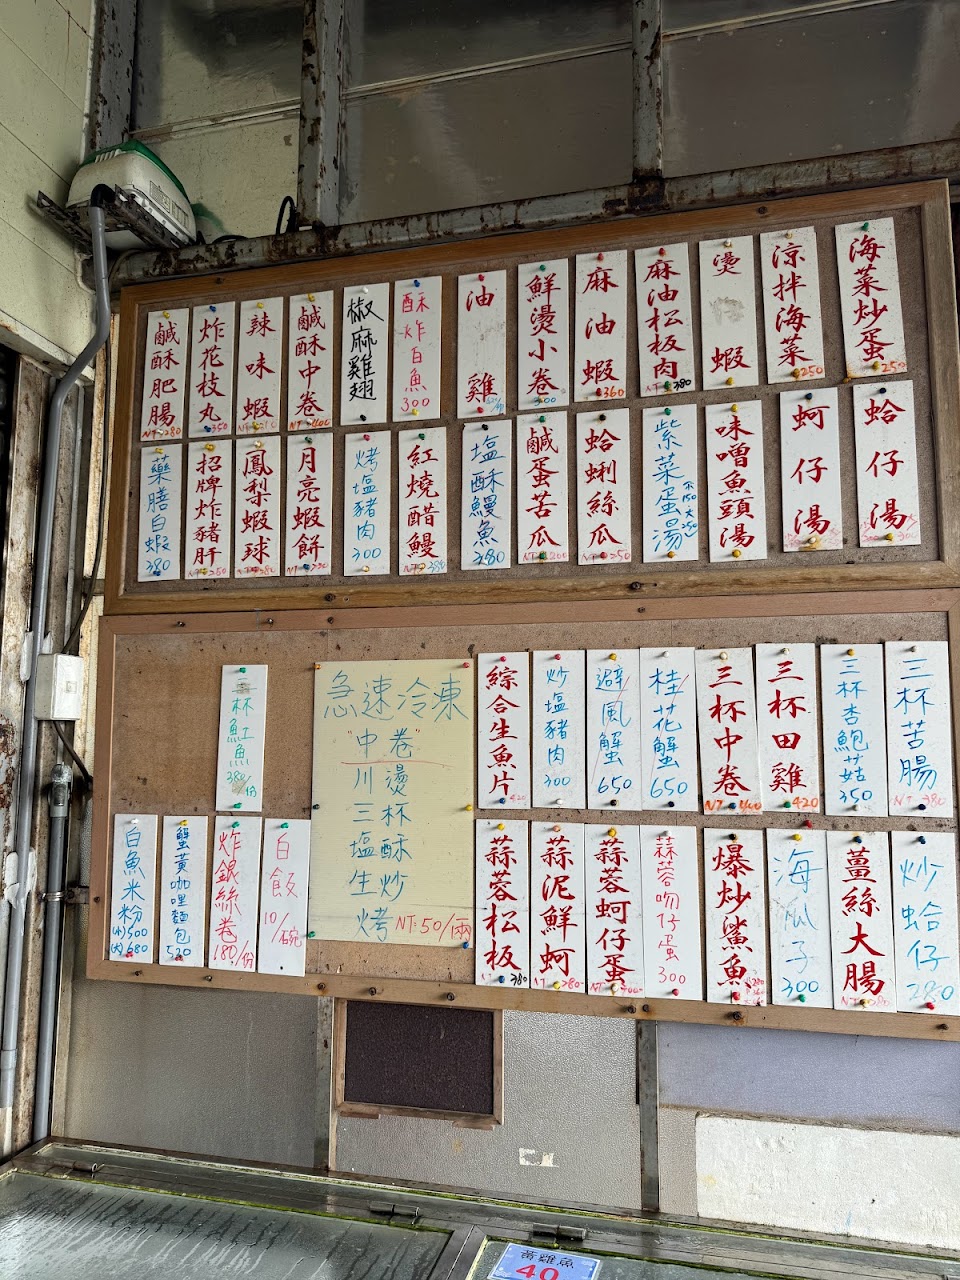 鹹酥肥腸 NT-280
炸花枝丸 350
辣味蝦
鹹酥中卷 NT-400
椒麻雞翅
酥炸白魚 300
油雞
鮮燙小卷
麻油蝦 360
麻油松板肉 380
燙蝦
涼拌海菜 250
海菜炒蛋 250
藥膳白蝦 380
招牌炸豬肝 NT-250
鳳梨蝦球
月亮蝦餅
烤塩豬肉 300
紅燒醋鰻
塩酥鰻魚 380
鹹蛋苦瓜
蛤蜊絲瓜 NT-250
紫菜蛋湯 小150 大250
味噌魚頭湯
蚵仔湯
蛤仔湯
三杯魟魚 380/份
急速冷凍
"中卷"
川燙
三杯
塩酥
生炒
烤 NT:50/兩
綜合生魚片 420
炒塩豬肉 300
避風蟹 650
桂花蟹 650
三杯中卷 NT-400
三杯田雞 420
三杯杏鮑菇 350
三杯苦腸 NT-380
白魚米粉 (小)500 (大)680
蟹黃咖哩麵包 520
炸銀絲卷 180/份
白飯 10/碗
蒜蓉松板 380
蒜泥鮮蚵 NT-280-
蒜蓉蚵仔蛋
蒜蓉吻仔蛋 300
爆炒鯊魚
海瓜子 300
薑絲大腸
炒蛤仔 280
黃雞魚
40